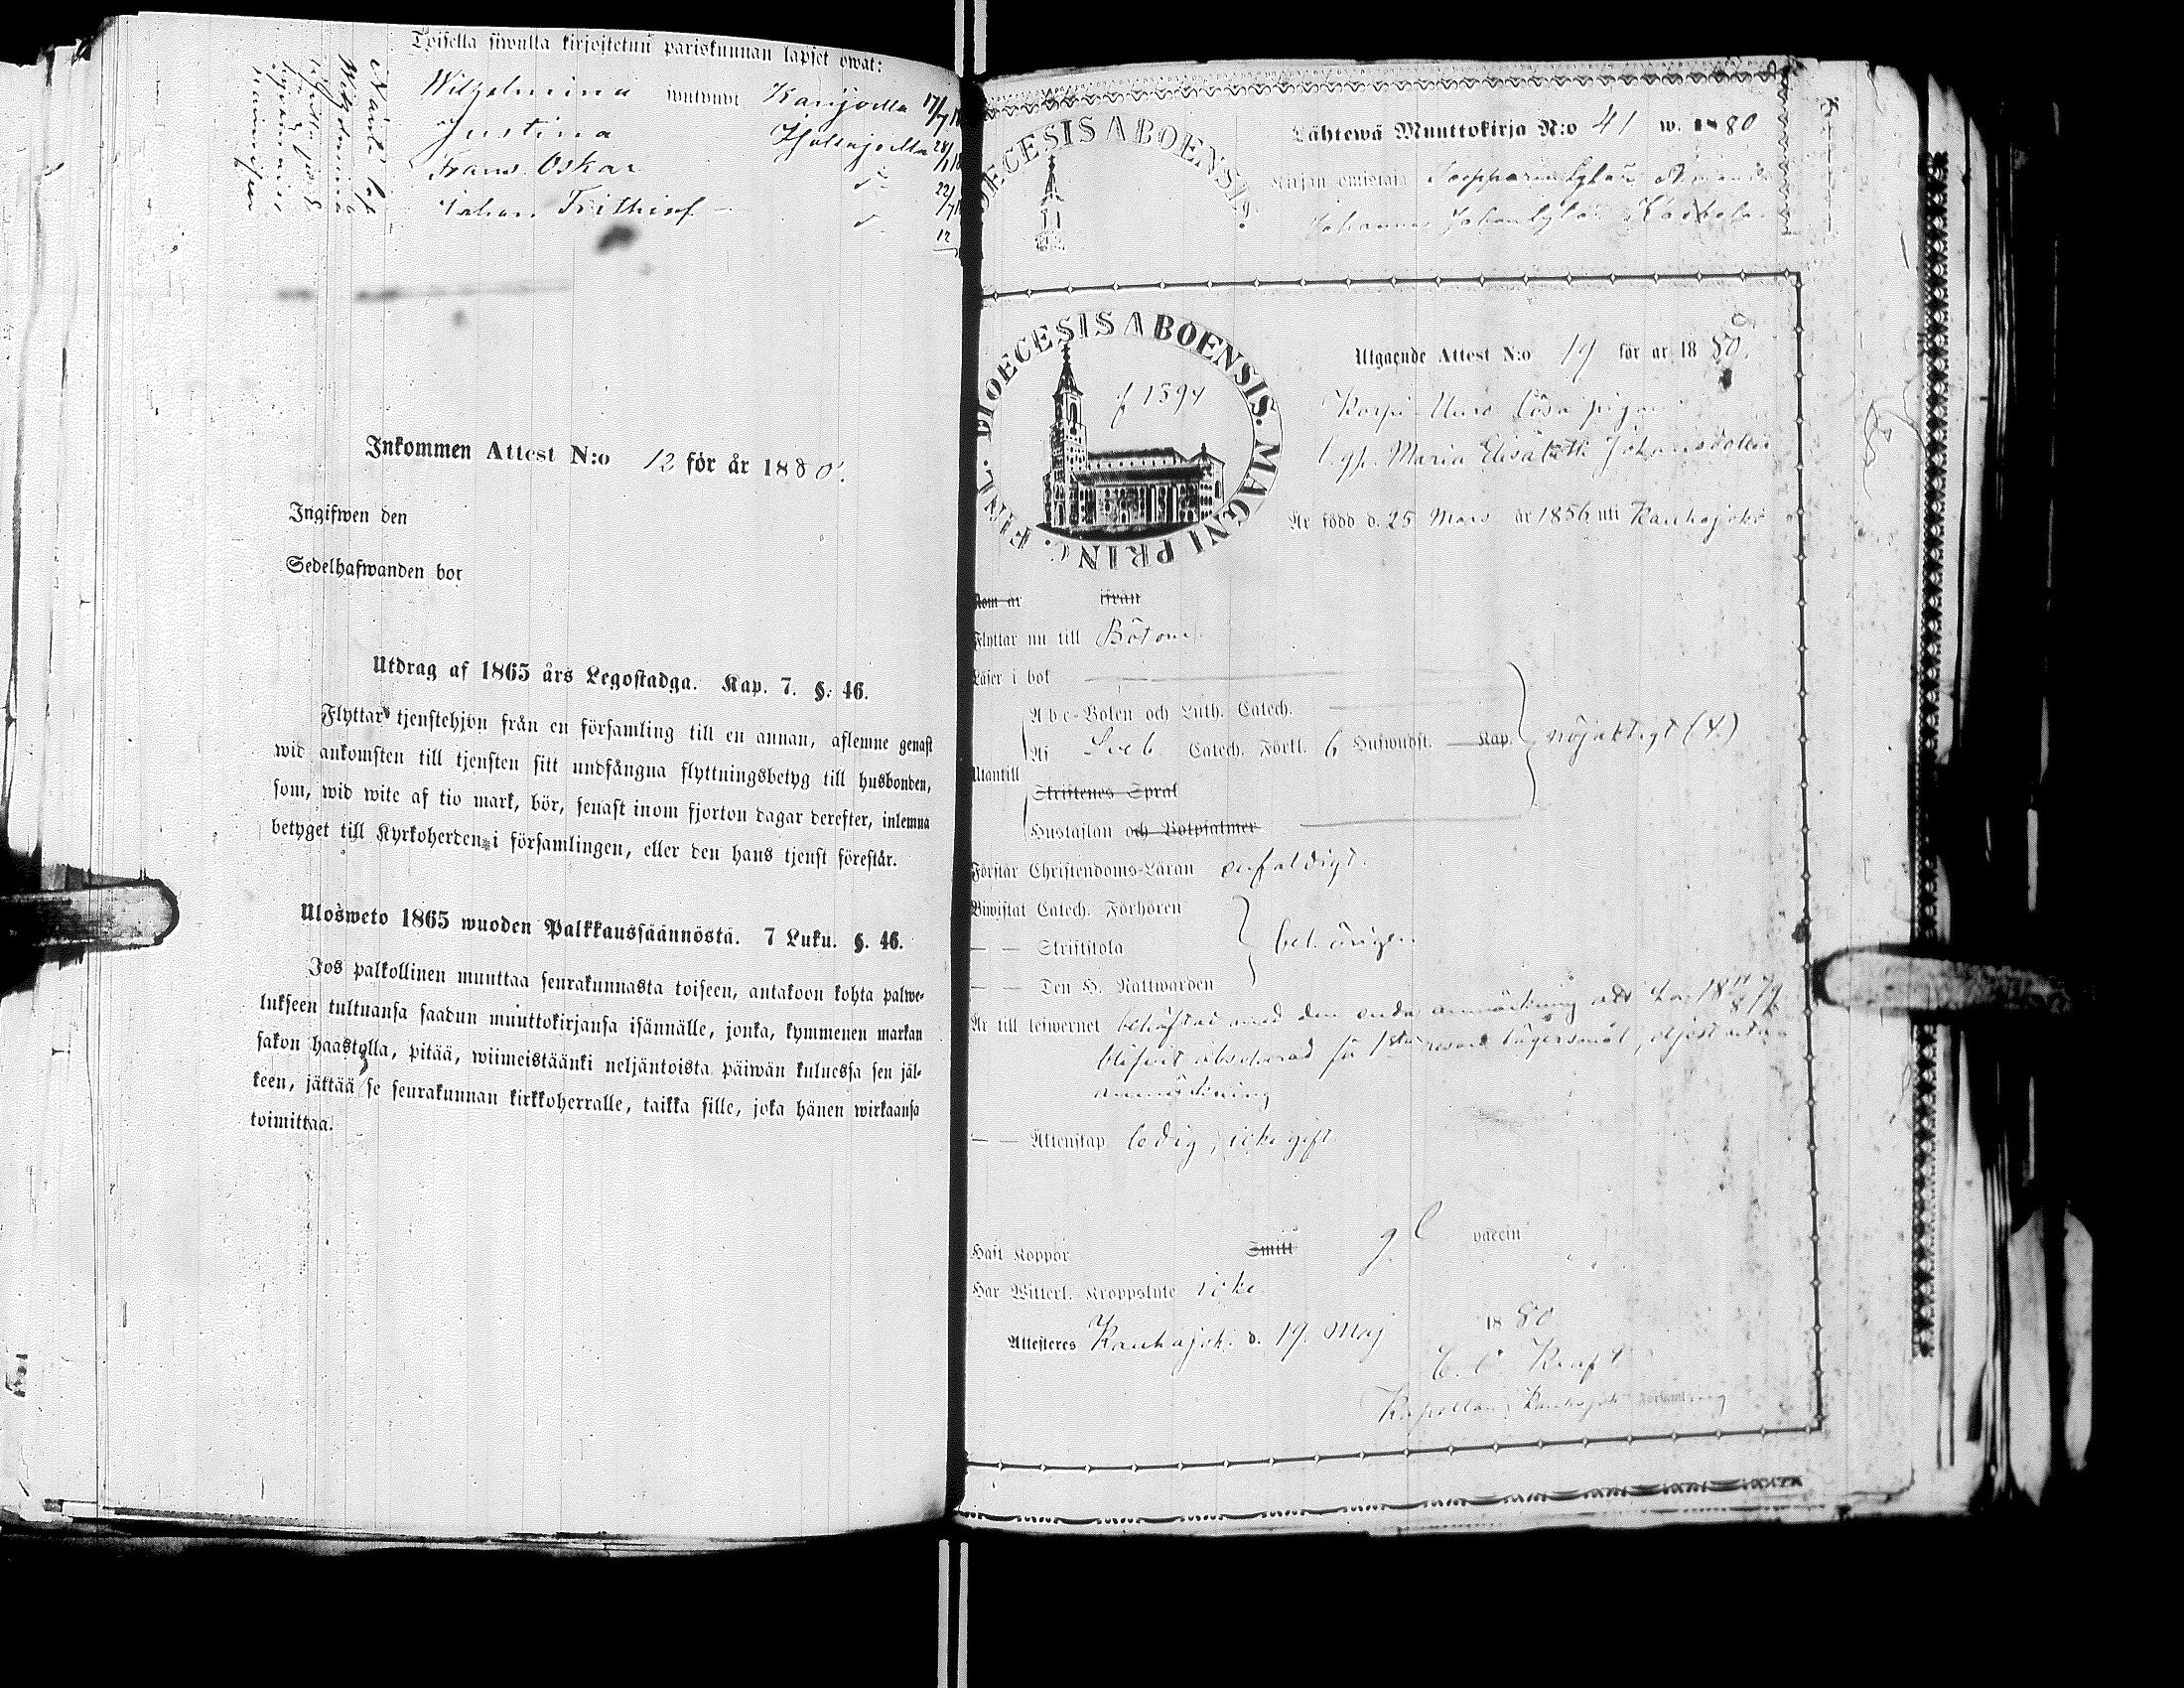 Toisella siwulla kirjoitetun pariskunnan lapset owat:
Wilhelmina syntynyt Karijoella 17/7
Justina Ilsajoella 28/1
Frans Oskar d:o 22/7
Johan Frithiof — d:o 12
Inkommen Attest N:o 12 för år 1880.
Ingifwen den
Sedelhafwanden bor
Utdrag af 1865 års Legostadga. Kap. 7. §. 46.
Flyttar tjenstehjon från en församling till en annan, aflemne genast
wid ankomsten till tjensten sitt undfångna flyttningsbetyg till husbonden,
som, wid wite af tio mark, bör, senast inom fjorton dagar derefter, inlemna
betyget till Kyrkoherden i församlingen, eller den hans tjenst förestår.
Ulosweto 1865 wuoden Palkkaussäännöstä. 7 Luku. §. 46.
Jos palkollinen muuttaa seurakunnasta toiseen, antakoon kohta palwe-
lukseen tultuansa saadun muuttokirjansa isännälle, jonka, kymmenen markan
sakon haastolla, pitää, wiimeistäänki neljäntoista päiwän kuluessa sen jäl-
keen, jättää se seurakunnan kirkkoherralle, taikka sille, joka hänen wirkaansa
toimittaa.
DIOECESIS ABOENSIS.
Lähtewä Muuttokirja N:o 41 w. 1880
Kirjan omistaja
DIOECESIS ABOENSIS. MAGNI PRINC. FINL.
f 1394
Utgaende Attest N:o 19 för ar 1880.
Korpi lösa pigan
Maria Elisabeth Johansdotter
Är född d. 25 Mars år 1856 uti Kauhajoki
Kom är ifran
Flyttar nu till Bötom
Läser i bok
Abc-Boken och Luth. Catech.
Utantill
Af Sveb. Catech. Förkl. 6 Hufwudst. — Kap. nöjaktigt (4)
Skriftenes Språk
Hustaflan och Botpsalmer
Förstår Christendoms-Läran enfaldigt.
Biwistat Catech. Förhören
— — Skriftskola behörigen
— — Den H. Nattwarden
Är till lefwernet behäftad med den enda anmärkning att
blifvit absolverad för 1sta resan lägersmål, eljest utan
anmärkning
— — Äktenskap ledig, icke gift
Haft Koppor Smitt vaccin
Har Witterl. Kroppslyte icke.
Attesteres Kauhajoki d. 19. Maj 1880
Kraft
Kapellan i Kauhajoki Församling